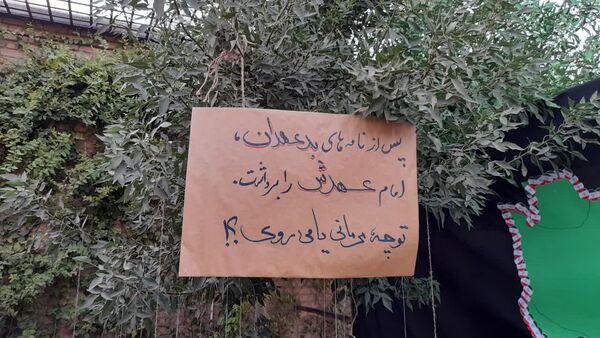 پس از نامه های بدعهدان،
امام عهدش را برداشت.
تو چه می مانی یا می روی ؟!